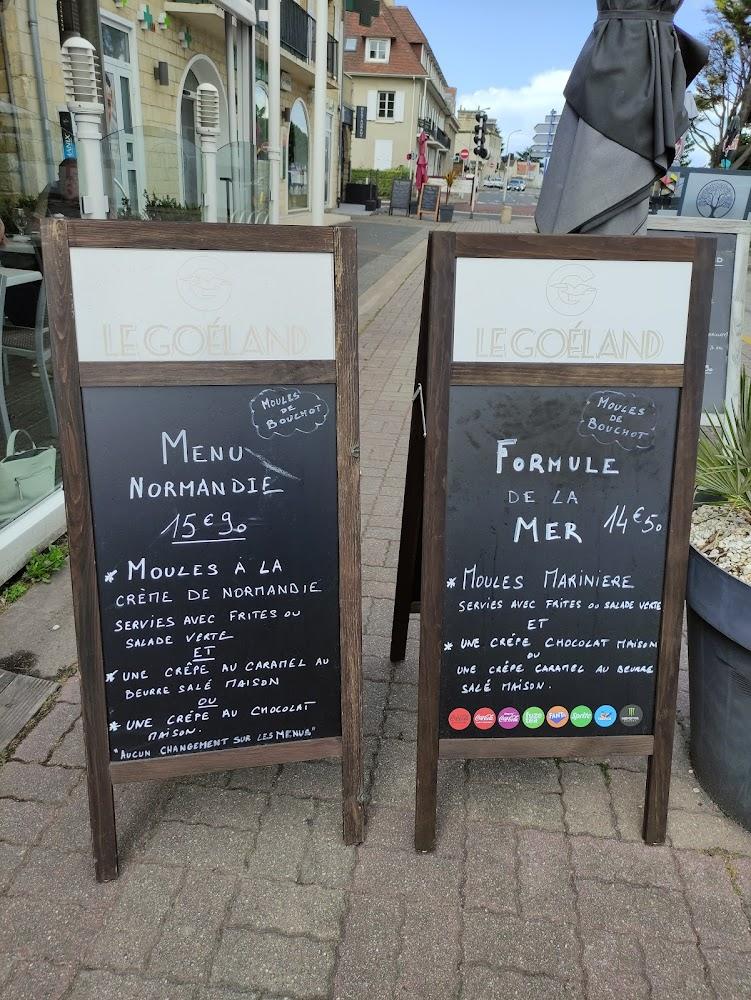 LE GOÉLAND
MOULES
DE
BOUCHOT
MENU
NORMANDIE
15€90
* MOULES À LA
CRÈME DE NORMANDIE
SERVIES AVEC FRITES OU
SALADE VERTE
ET
* UNE CRÊPE AU CARAMEL AU
BEURRE SALÉ MAISON
OU
* UNE CRÊPE AU CHOCOLAT
MAISON.
"AUCUN CHANGEMENT SUR LES MENUS"
LE GOÉLAND
MOULES
DE
BOUCHOT
FORMULE
DE LA
MER 14€50
* MOULES MARINIERE
SERVIES AVEC FRITES OU SALADE VERTE
ET
* UNE CRÊPE CHOCOLAT MAISON
OU
UNE CRÊPE CARAMEL AU BEURRE
SALÉ MAISON.
Coca-Cola
Coca-Cola
fuze tea
FANTA
Sprite